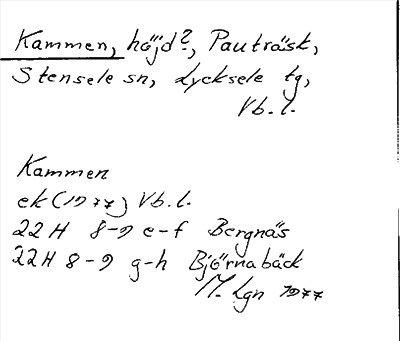 Kammen, höjd?, Pauträsk,
Stensele sn, Lycksele tg,
Vb. l.
Kammen
ek (1977) Vb. l.
22H 8-9 e-f Bergnäs
22H 8-9 g-h Björnabäck
M. Lgn 1977